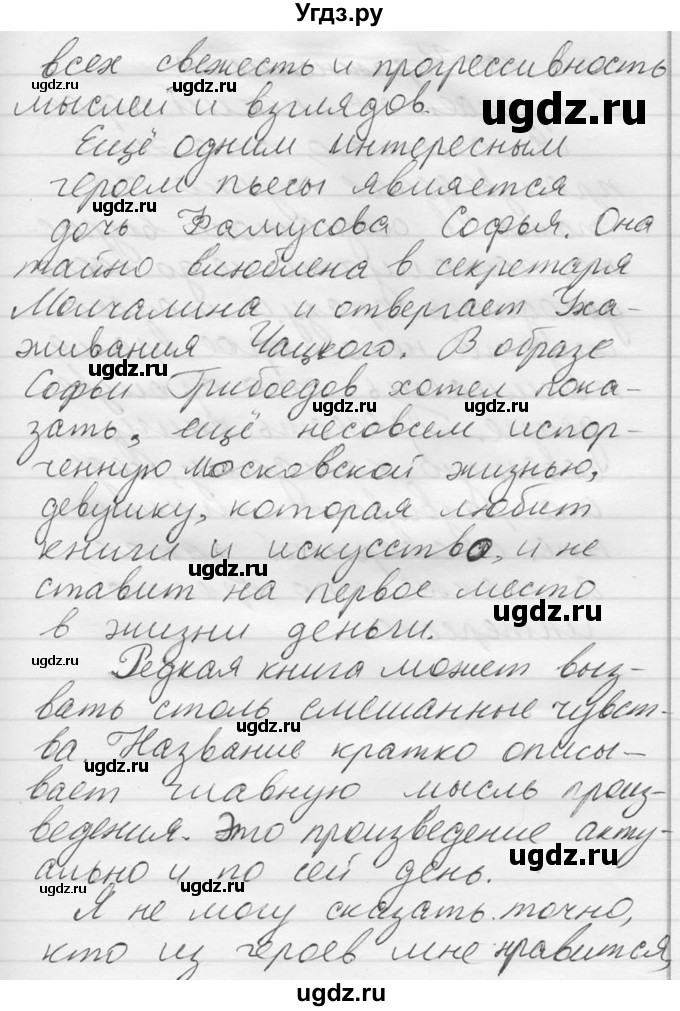 Угдз.ру
всех свежесть и прогрессивность
мыслей и взглядов.
Ещё одним интересным
героем пьесы является
дочь Фамусова Софья. Она
тайно влюблена в секретаря
Молчалина и отвергает Уха-
живания Чацкого. В образе
Софьи Грибоедов хотел пока-
зать, ещё несовсем испор-
ченную московской жизнью,
девушку, которая любит
книги и искусство, и не
ставит на первое место
в жизни деньги.
Редкая книга может выз-
вать столь смешанные чувст-
ва Название кратко описы-
вает главную мысль произ-
ведения. Это произведение акту-
ально и по сей день.
Я не могу сказать точно,
кто из героев мне нравится,
ugdz.ru